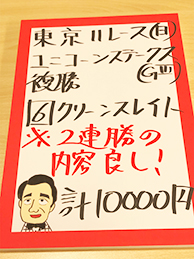 東京11レース(日)
ユニコーンステークス
(GⅢ)
複勝
6 クリーンスレイト
※2連勝の
内容良し!
計10000円